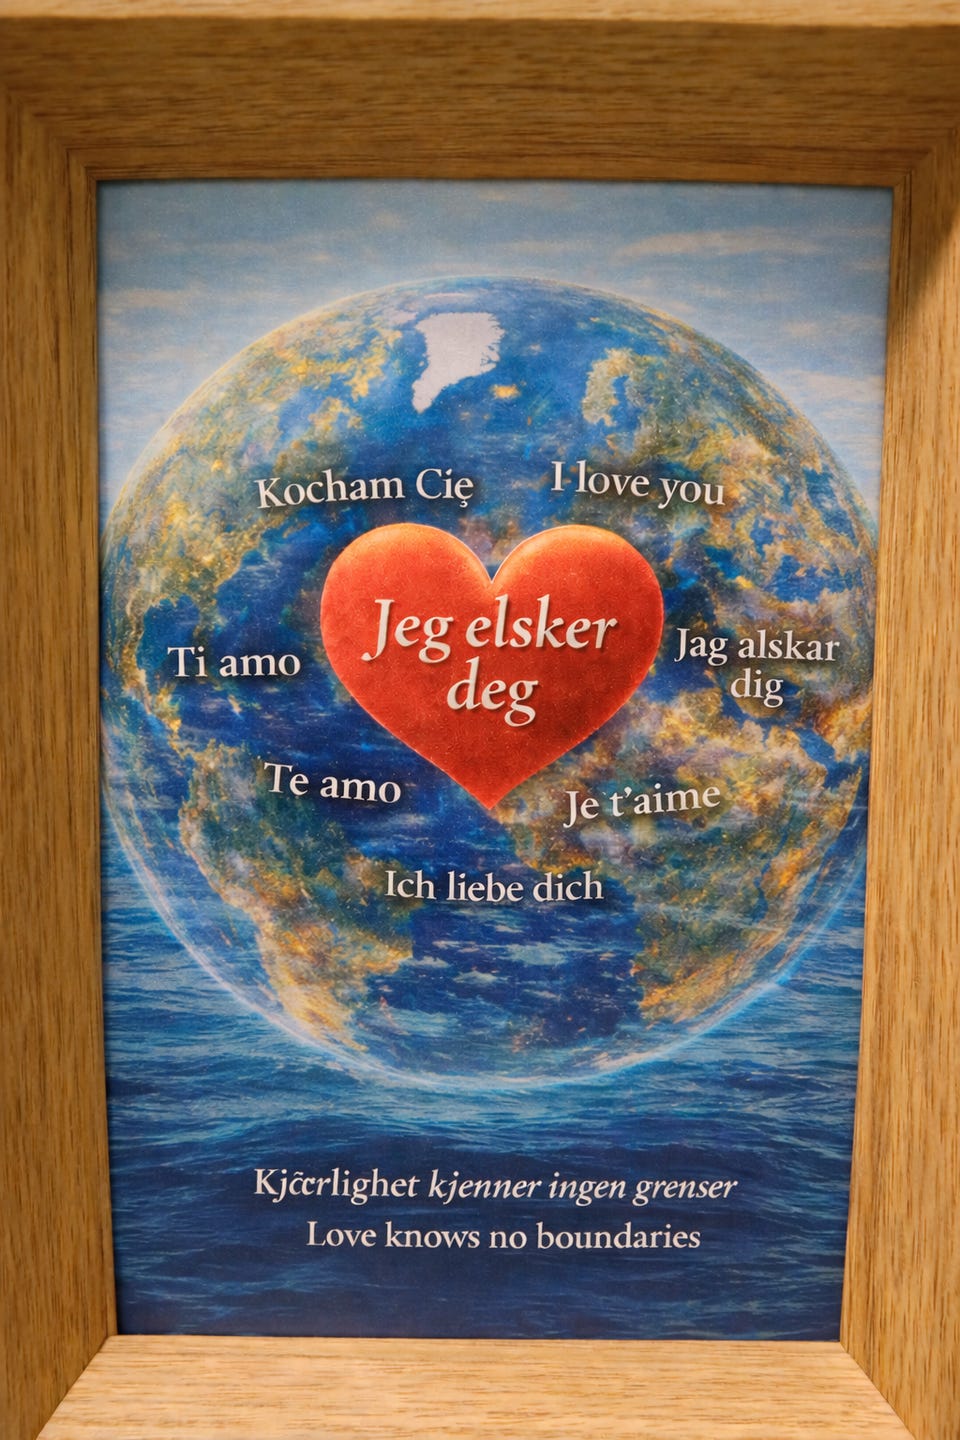 Kocham Cię
I love you
Jeg elsker
deg
Ti amo
Jag alskar
dig
Te amo
Je t'aime
Ich liebe dich
kjenner ingen grenser
Love knows no boundaries